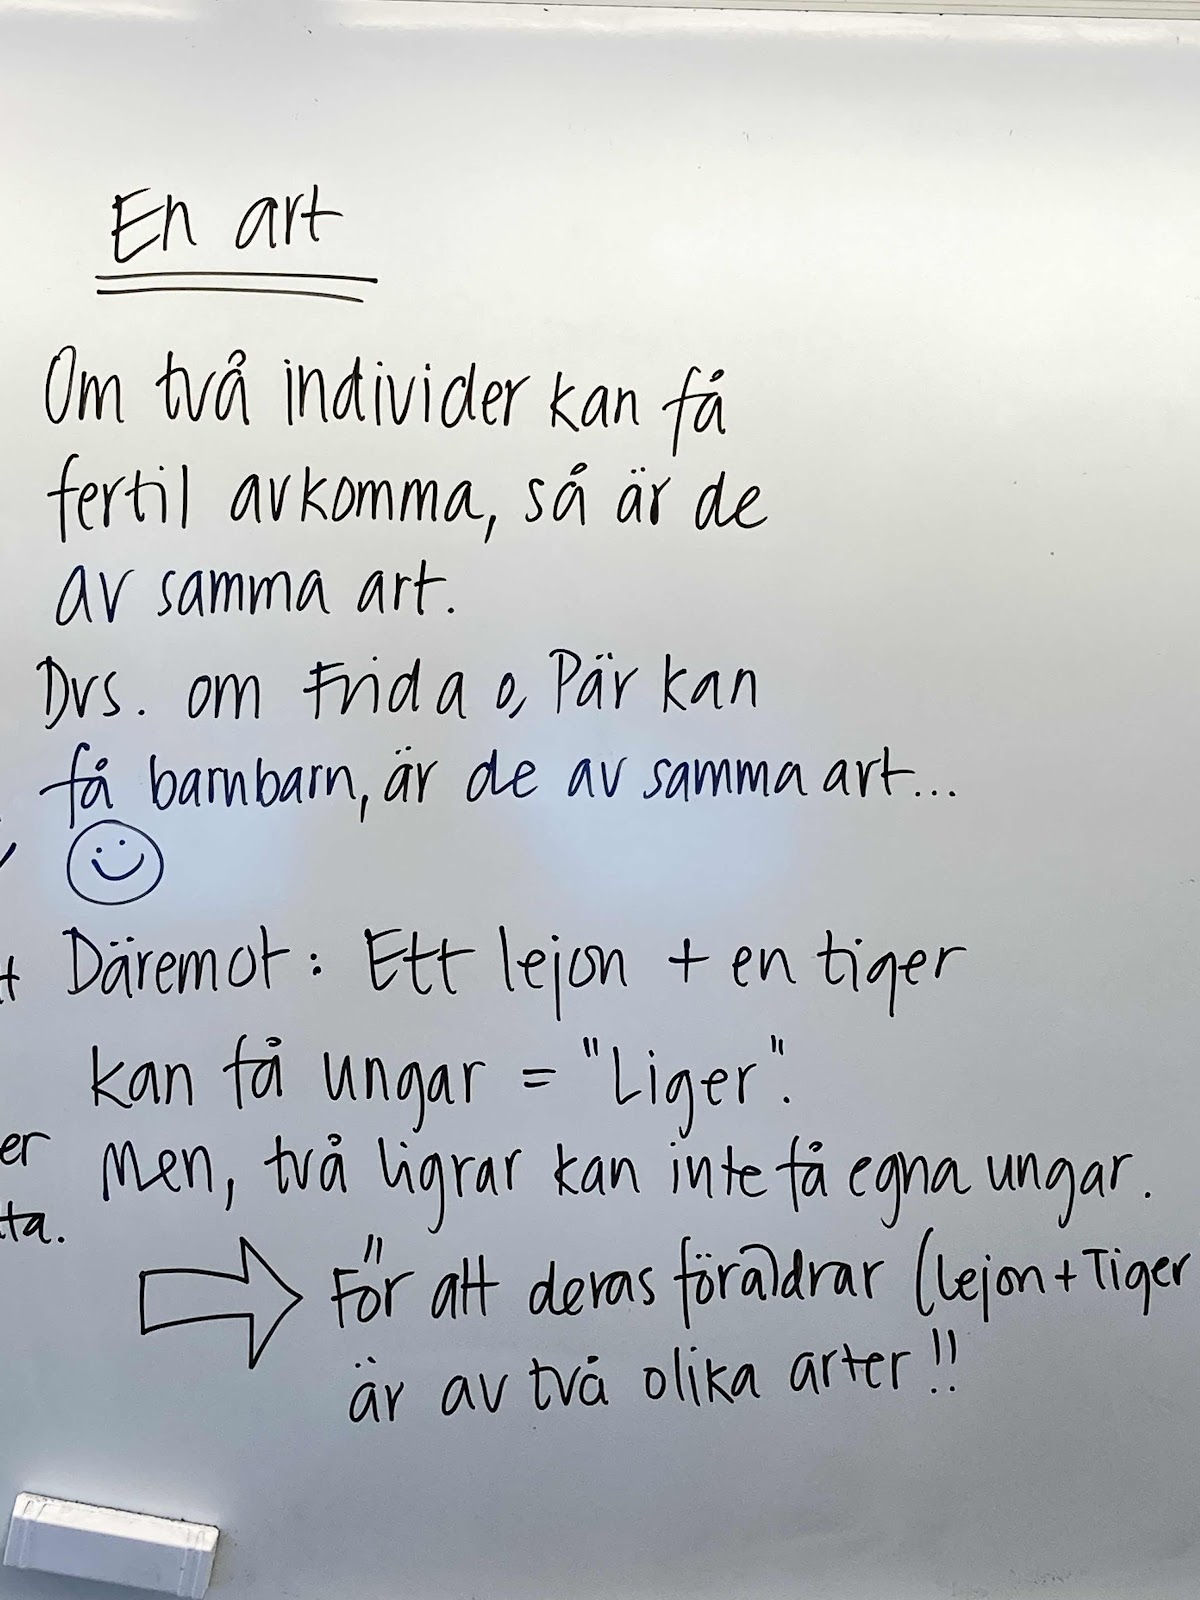 En art
Om två individer kan få
fertil avkomma, så är de
av samma art.
Dvs. om Frida o, Pär kan
få barnbarn, är de av samma art...
t Däremot: Ett lejon + en tiger
kan få ungar = "Liger".
er Men, två ligrar kan inte få egna ungar.
ta.
För att deras föräldrar (lejon + Tiger
är av två olika arter!!